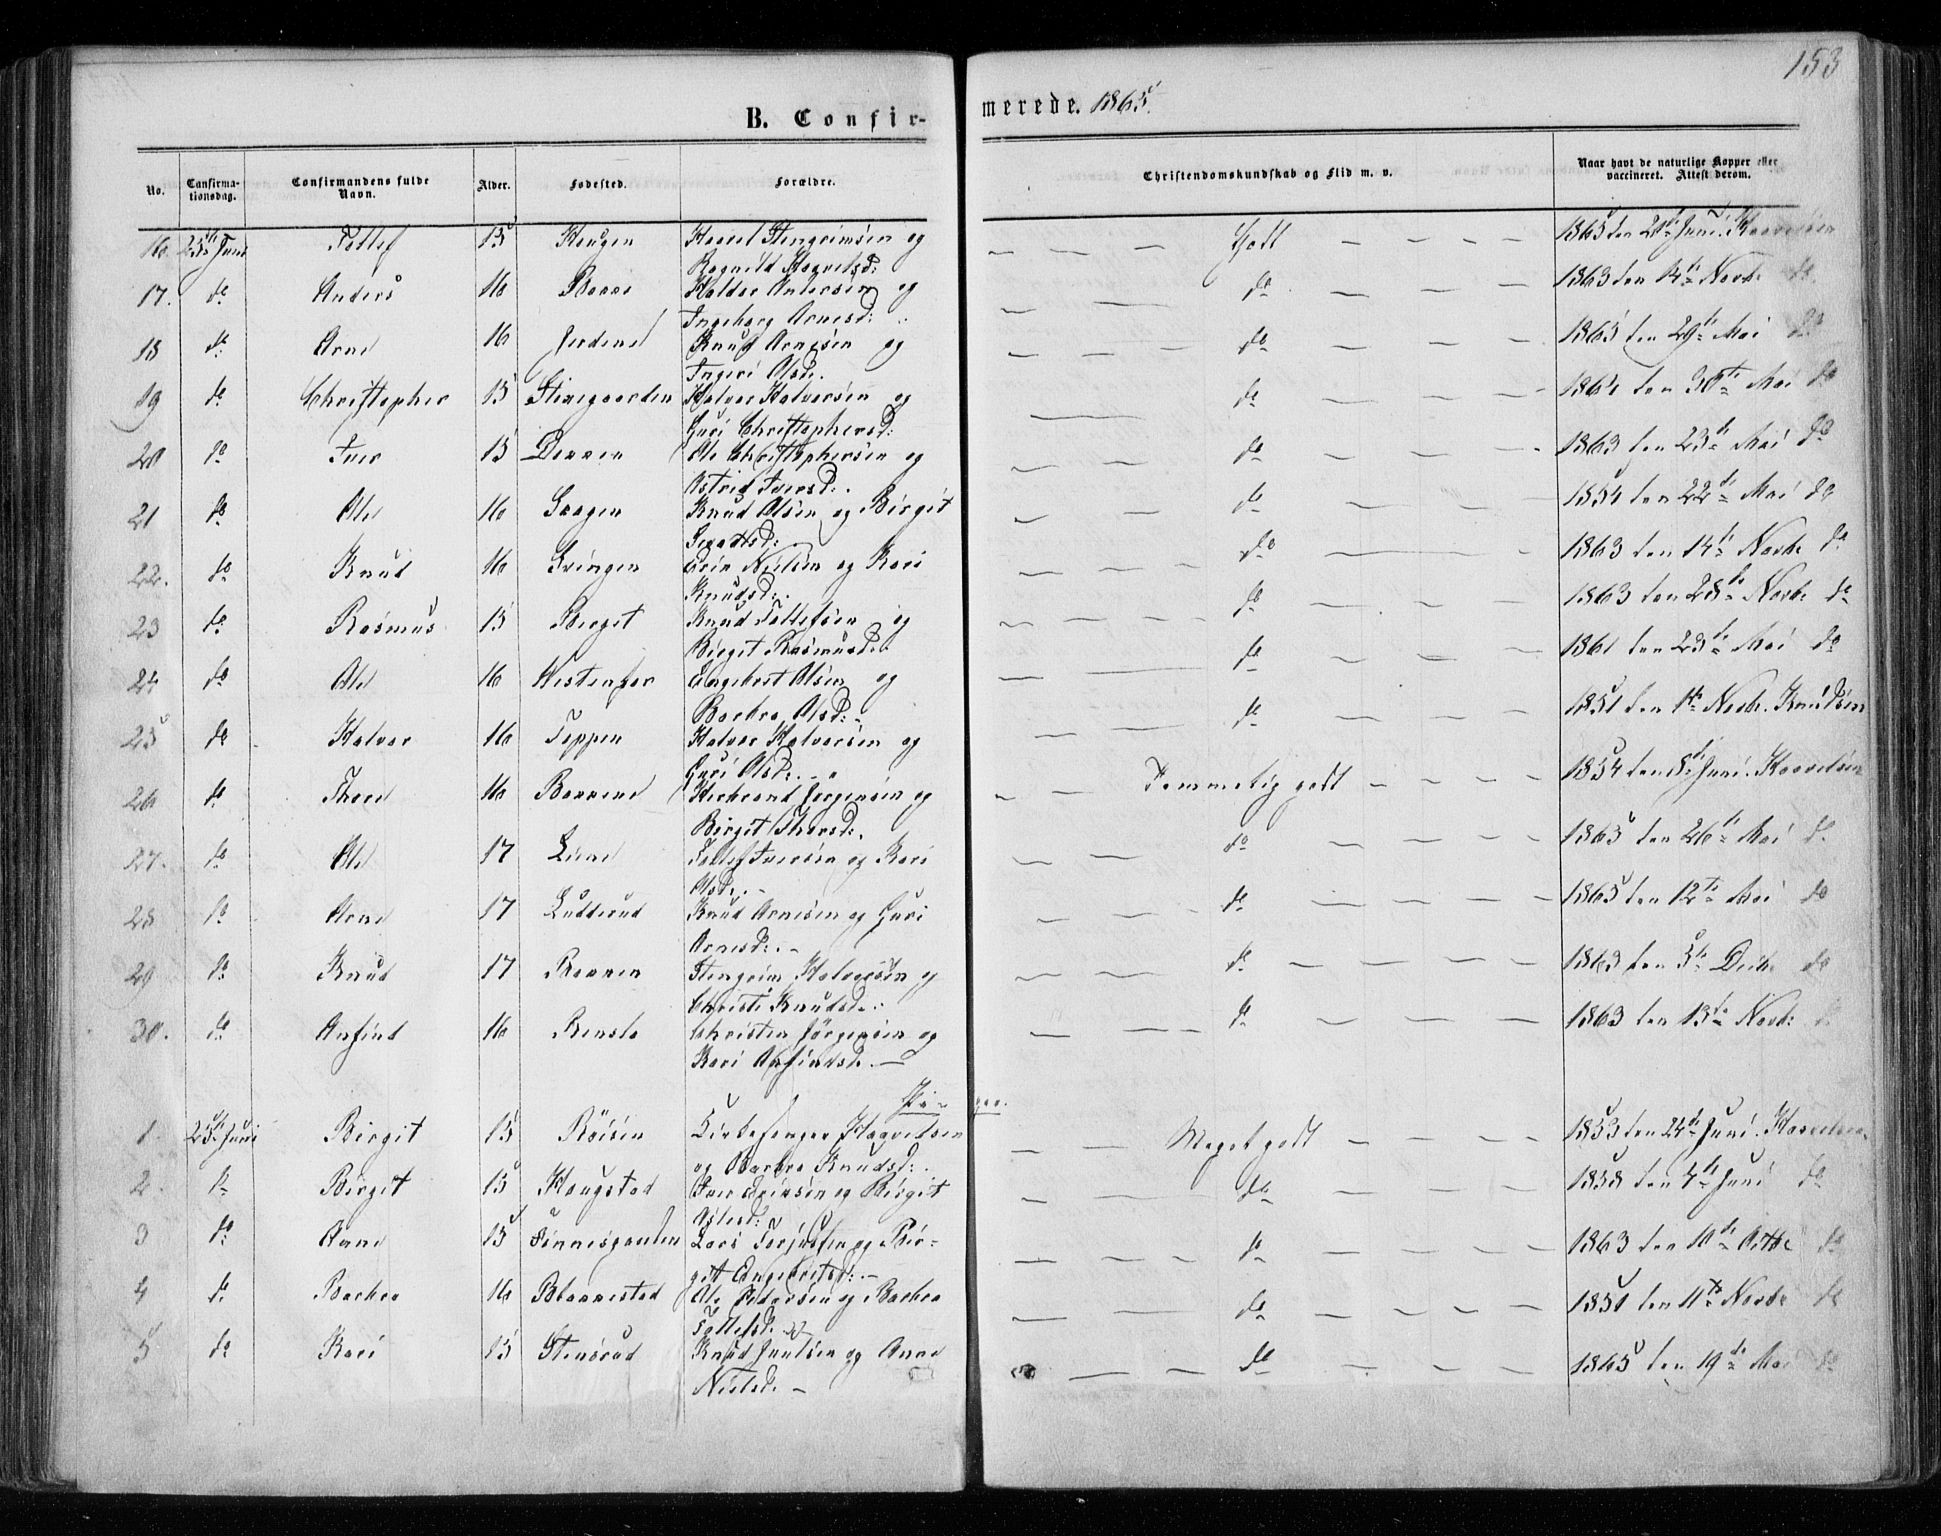 153
B. Confirmerede. 1865.
No. Confirmationsdag. Confirmandens fulde Navn. Alder. Fødested. Forældre. Christendomskundskab og Flid m. v. Naar havt de naturlige Kopper eller vaccineret. Attest derom.
16. 25de Juni Tollef 15 Haugen Haavel Stengrimsen og Godt 1865 den 20de Juni
Ragnild Haavelsd:
17. do Anders 16 Halder Andersen og do 1863 den 14de Novbr do
Ingeborg Arnesd:
18 do Arne 16 Jordene Knud Arnesen og do 1865 den 29de Mai do
Ingeri Olsd.
19 do Christopher 15 Stinegaarden Halvor Halvorsen og do den 30te Mai do
Guri Christophersd:
20 do Iver 15 Ole Christophersen og do 1863 den 23de Mai do
Astrid Iversd:.
21 do Ole 16 Haagen Knud Olsen og Birgit do 1854 den 22de Mai do
22. do Knud 16 Svingen Erik Nielsen og Kari do 1863 den 14de Novbr do
Knudsd:.
23 do Rasmus 15 Knud Tollefsen og do 1863 den 28de Novbr do
Birgit Rasmusd:.
24 do Ole 16 Engebret Olsen og do 1861 den 23de Mai do
Barbra Olsd:
25 do Halvor 16 Toppen Halvor Halvorsen og do 1851 den 1te Novbr. Knudsen
Guri Olsd:.
26 do Thore 16 Herbrand Jørgensen og Temmelig godt 1854 den 8de Juni
Birgit Thoresd:.
27. do Ole 17 Liene Tollef Iversen og Kari do 1865 den 26te Mai do
Olsd:.
28 do Arne 17 Lutterud Knud Arnesen og Guri do 1865 den 12te Mai do
Arnesd:.
29 do Knud 17 Stengrim Halvorsen og do 1863 den 5te Decbr do
Christi Knudsd.
30. do Anfind 16 Rensla Christen Jørgensen og do 1863 den 13de Novbr: do
Kari Anfindsd.
Piger.
1. 25de Juni Birgit 15 Röisen Haavelsen Meget godt 1853 den 24de Juni.
og Barbra Knudsd:.
2. do Birgit 15 Haugstad Iver Eriksen og Birgit do 1858 den 4de Juni do
3 do Anne 15 Tinnesganden Lars Torjussen og Bir- do 1863 den 10de do
git Engebretsd:.
4 do Barbra 16 Ole Pedersen og Barbra do 1851 den 11te Novbr do
Tollefsd.
5 do Kari 15 Stensrud Knud Juulsen og Anne do 1865 den 19de Mai do
Nielsd.